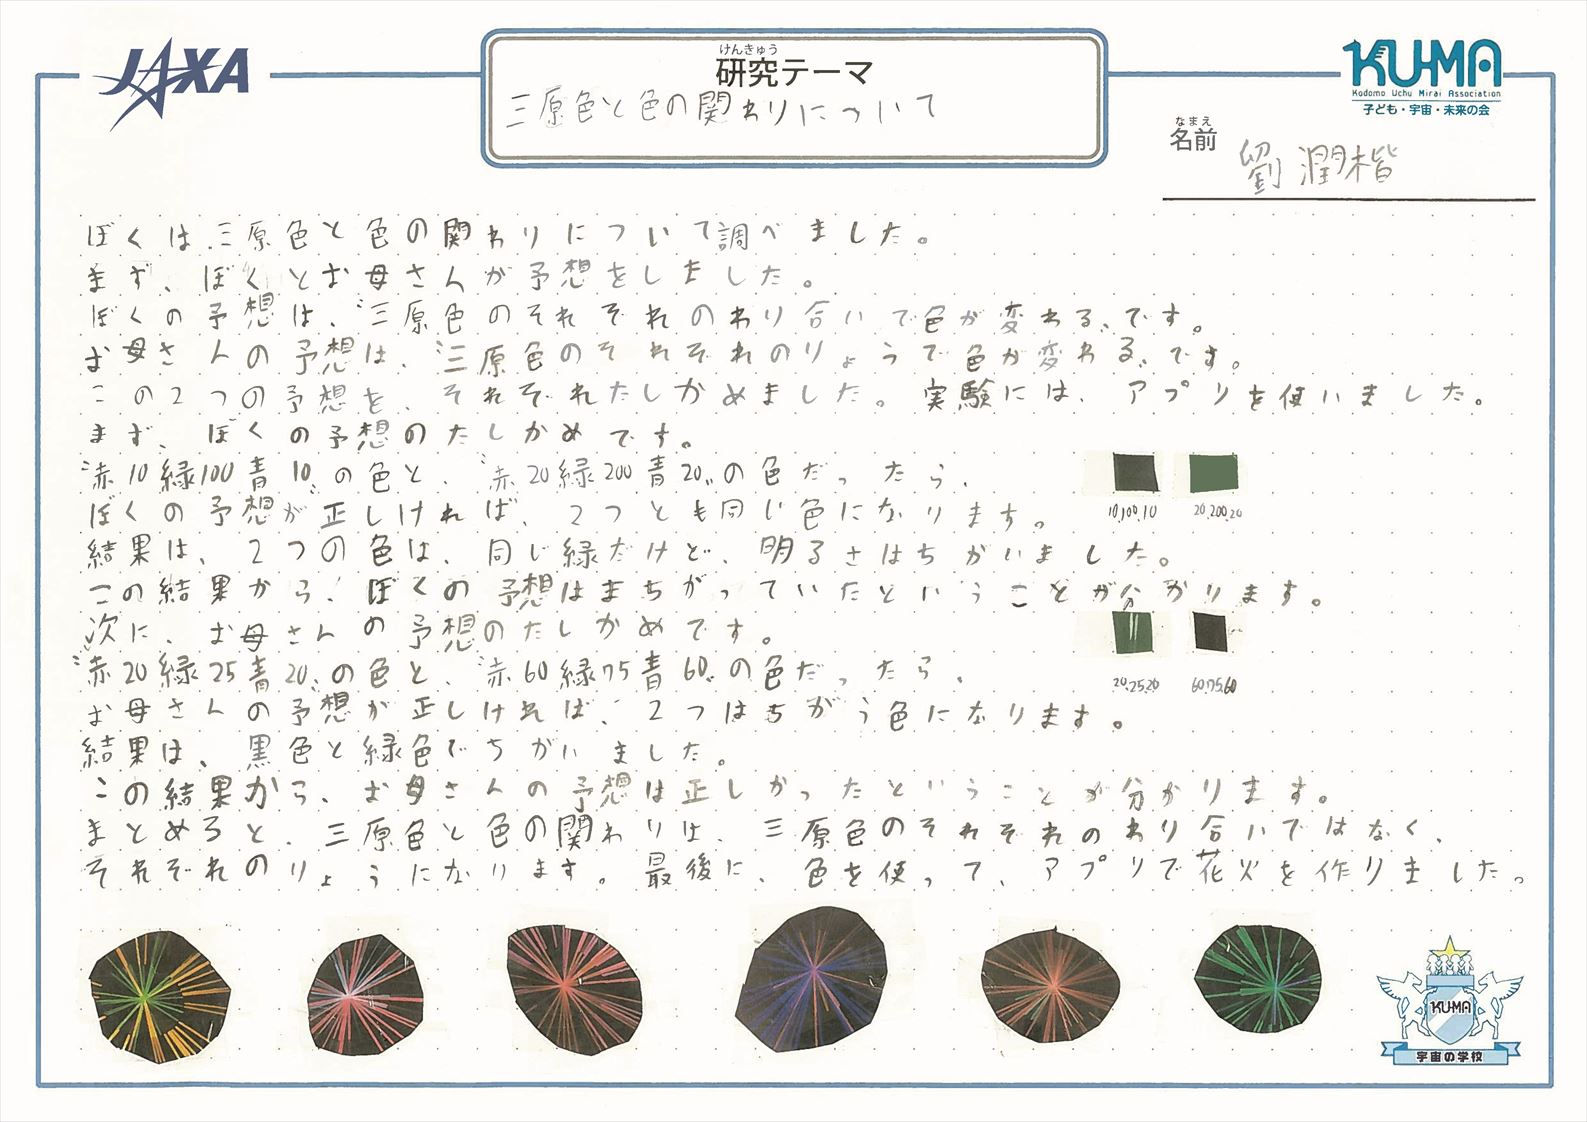 JAXA
けんきゅう
研究テーマ
三原色と色の関わりについて
KUMA
Kodomo Uchu Mirai Association
子ども・宇宙・未来の会
なまえ
名前
劉潤楷
ぼくは三原色と色の関わりについて調べました。
まず、ぼくとお母さんが予想をしました。
ぼくの予想は、〝三原色のそれぞれのわり合いで色が変わる〟です。
お母さんの予想は、〝三原色のそれぞれのりょうで色が変わる〟です。
この2つの予想を、それぞれたしかめました。実験には、アプリを使いました。
まず、ぼくの予想のたしかめです。
〝赤10緑100青10〟の色と、〝赤20緑200青20〟の色だったら、
10,100,10
20,200,20
ぼくの予想が正しければ、2つとも同じ色になります。
結果は、2つの色は、同じ緑だけど、明るさはちがいました。
この結果から、ぼくの予想はまちがっていたということが分かります。
次に、お母さんの予想のたしかめです。
〝赤20緑25青20〟の色と、〝赤60緑75青60〟の色だったら、
20,25,20
60,75,60
お母さんの予想が正しければ、2つはちがう色になります。
結果は、黒色と緑色でちがいました。
この結果から、お母さんの予想は正しかったということが分かります。
まとめると、三原色と色の関わりは、三原色のそれぞれのわり合いではなく、
それぞれのりょうになります。最後に、色を使って、アプリで花火を作りました。
KU-MA
宇宙の学校